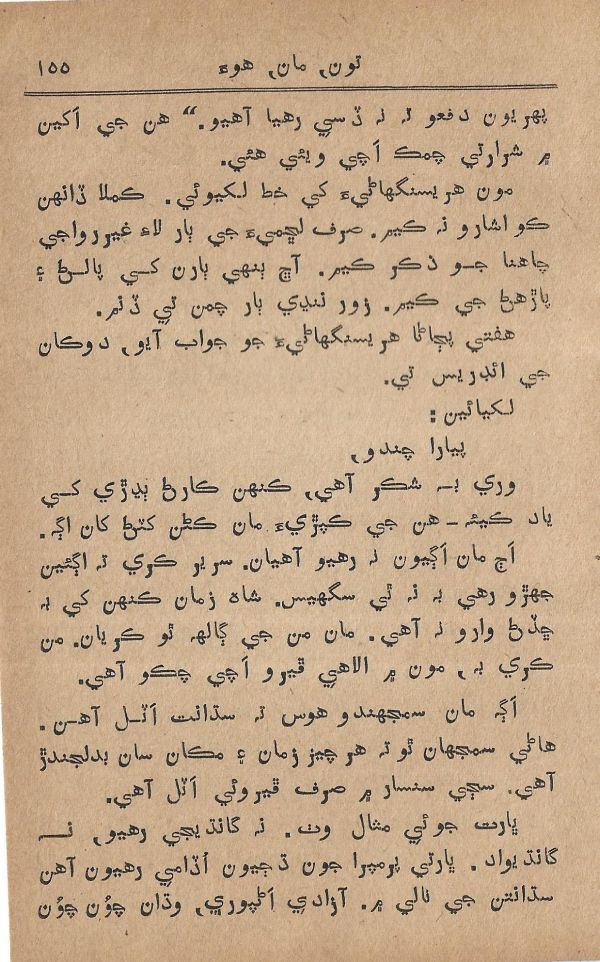 تون, مان, هوءَ ١٥٥
پهريون دفعو ته نه ڏسي رهيا آهيو.“ هن جي اَکين
۾ شرارتي چمڪ اَچي ويئي هئي.
مون هريسنگهاڻيءَ کي خط لکيوئي. ڪملا ڏانهن
ڪو اشارو نه ڪيم. صرف لڇميءَ جي ٻار لاءِ غيررواجي
چاهنا جو ذڪر ڪيم. آڇ ٻنهي ٻارن کي پالڻ ۽
پاڙهڻ جي ڪيم. زور ننڍي ٻار چمن تي ڏنم.
هفتي پڄاڻا هريسنگهاڻيءَ جو جواب آيو, دوڪان
جي ائڊريس تي.
لکيائين:
پيارا چندو,
وري به شڪر آهي, ڪنهن ڪارڻ ٻڍڙي کي
ياد ڪيئه ـ هن جي ڪپڙيءَ مان ڪڻن کٽڻ کان اڳه.
اَڄ مان اَڳيون نه رهيو آهيان. سرير ڪري ته اڳئين
جهڙو رهي به نه ٿي سگهيس. شاهه زمان ڪنهن کي به
ڇڏڻ وارو نه آهي. مان من جي ڳالهه ٿو ڪريان. من
ڪري به, مون ۾ الاهي ڦيرو اَچي چڪو آهي.
اَڳه مان سمجهندو هوس ته سڌانت اَٽل آهن.
هاڻي سمجهان ٿو ته هر چيز زمان ۽ مڪان سان بدلجندڙ
آهي. سڄي سنسار ۾ صرف ڦيروئي اَٽل آهي.
ڀارت جوئي مثال وٺ. نه گانڌيجي رهيو, نه
گانڌيواد. ڀارتي پرمپرا جون ڌڄيون اُڏامي رهيون آهن
سڌانتن جي نالي ۾. آزادي اَڻپوري, وڌان چوُن چوُن